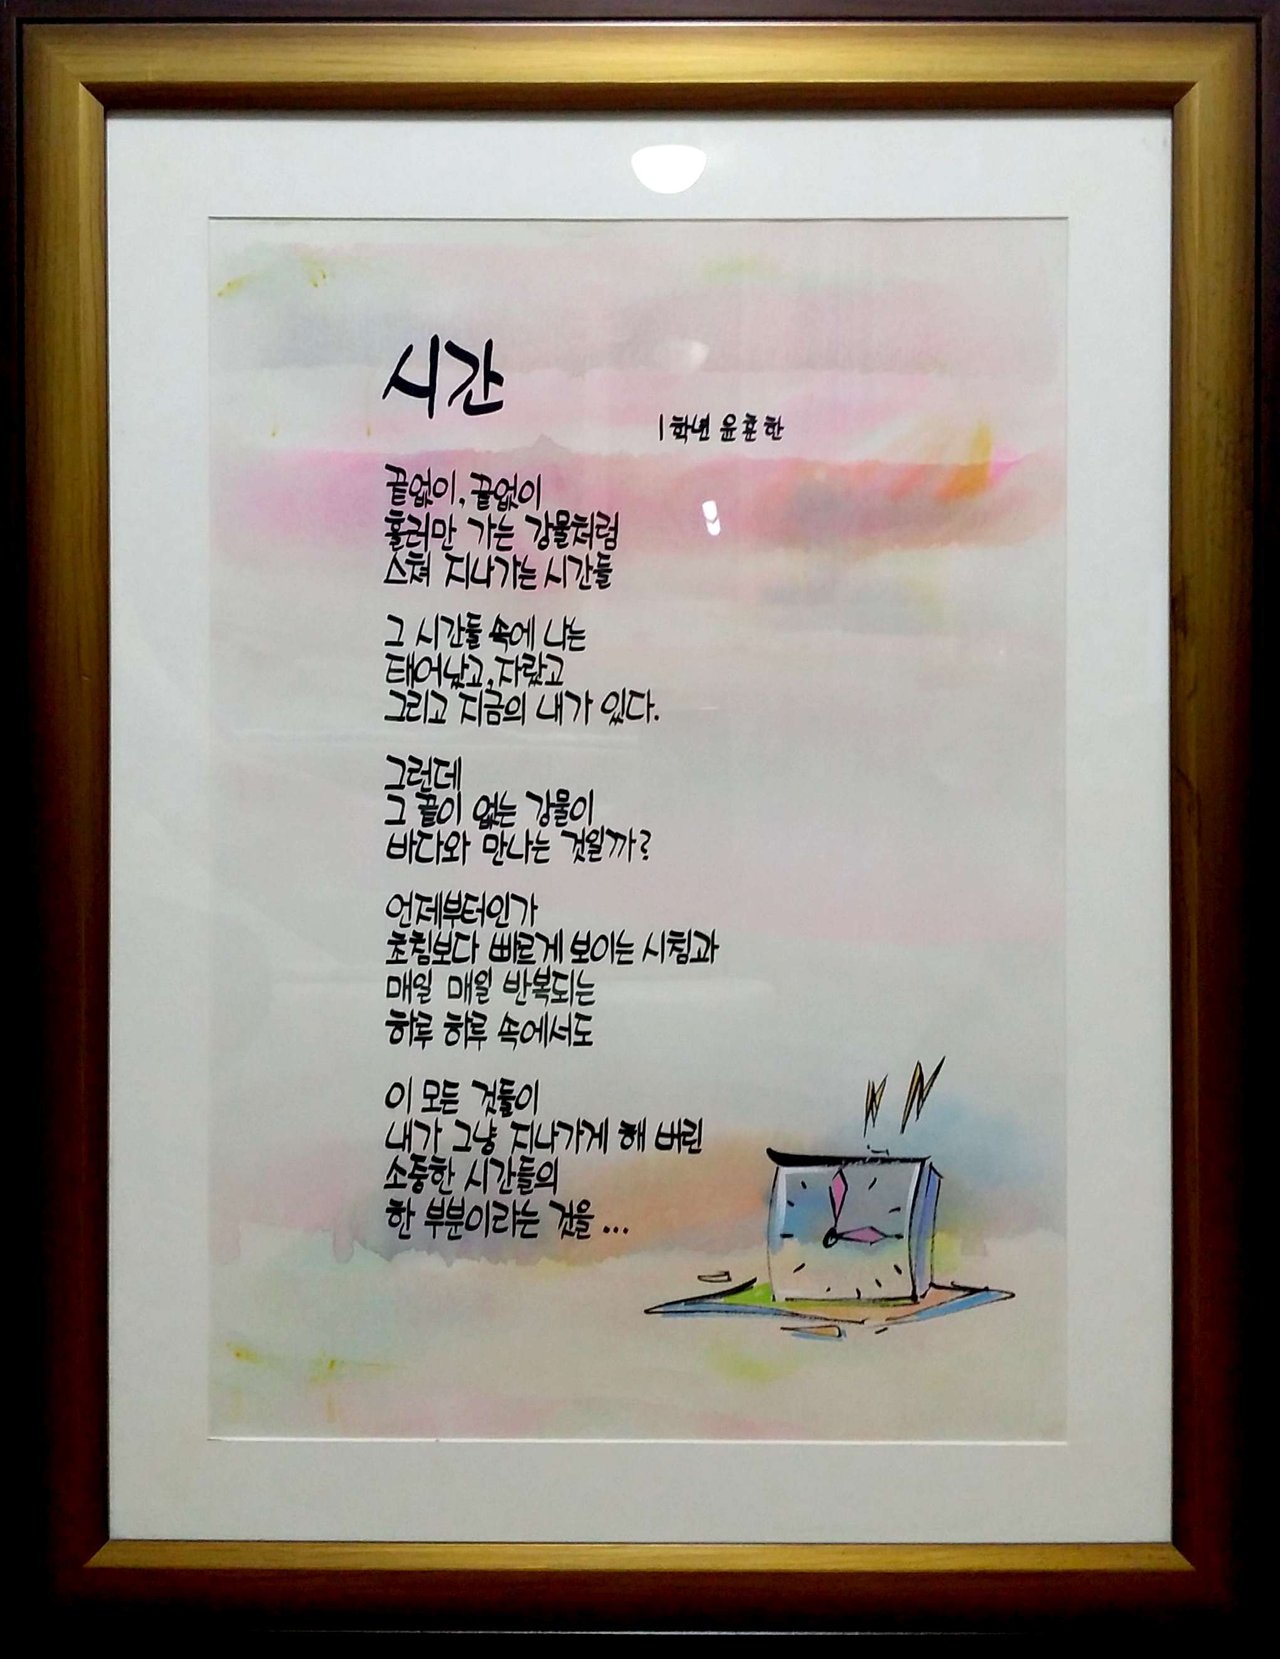 시간
1학년 윤훈한
끝없이, 끝없이
흘러만 가는 강물처럼
스쳐 지나가는 시간들
그 시간들 속에 나는
태어났고, 자랐고
그리고 지금의 내가 있다.
그런데
그 끝이 없는 강물이
바다와 만나는 것일까?
언제부터인가
초침보다 빠르게 보이는 시침과
매일 매일 반복되는
하루 하루 속에서도
이 모든 것들이
내가 그냥 지나가게 해 버린
소중한 시간들의
한 부분이라는 것을...